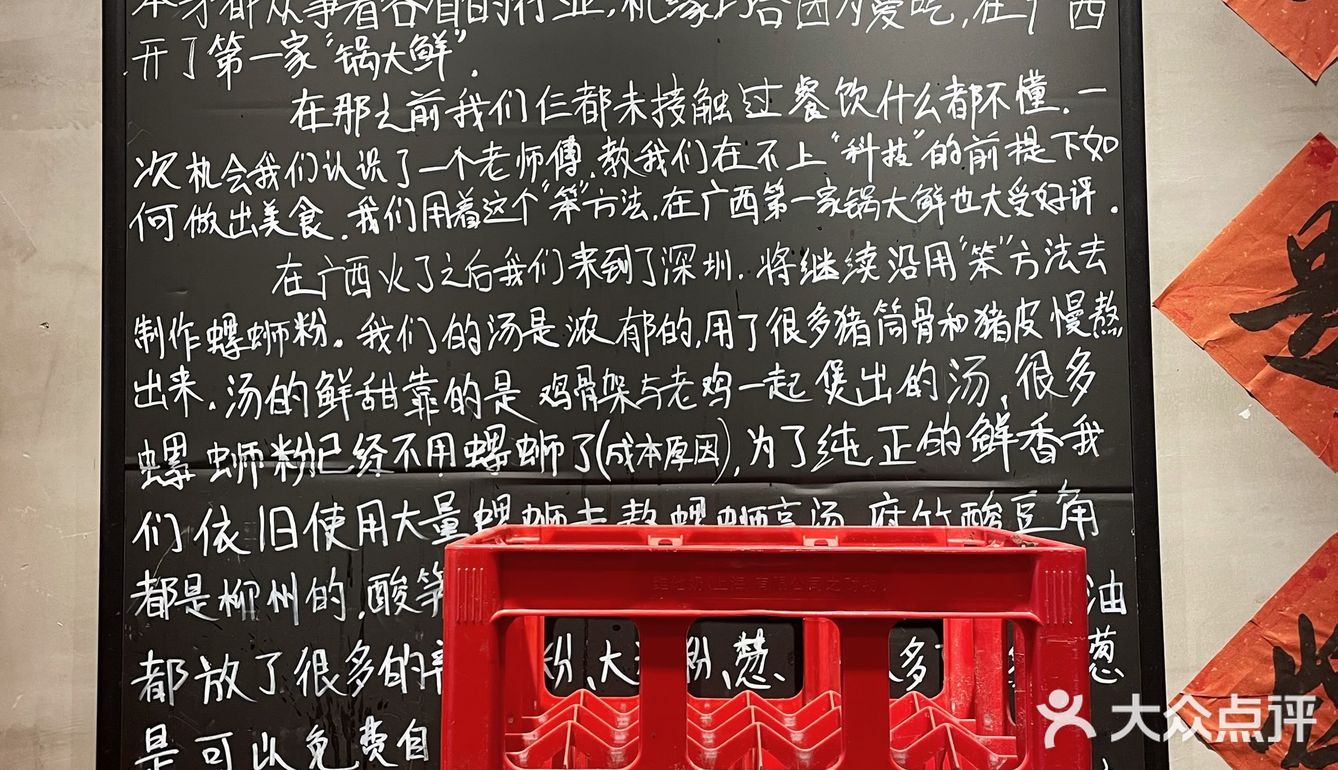 本身都从事着各自的行业,机缘巧合因为爱吃,在广西
开了第一家“锅大鲜”.
在那之前我们仨都未接触过餐饮什么都不懂.一
次机会我们认识了一个老师傅.教我们在不上“科技”的前提下如
何做出美食.我们用着这个“笨”方法.在广西第一家锅大鲜也大受好评.
在广西火了之后我们来到了深圳.将继续沿用“笨”方法去
制作螺蛳粉.我们的汤是浓郁的,用了很多猪筒骨和猪皮慢熬
出来.汤的鲜甜靠的是鸡骨架与老鸡一起煲出的汤,很多
螺蛳粉已经不用螺蛳了(成本原因),为了纯正的鲜香我
们依旧使用大量螺蛳去熬螺蛳高汤.腐竹酸豆角
都是柳州的,酸笋 油
都放了很多的 粉,大 粉,葱、 多 葱
是可以免费自
大众点评